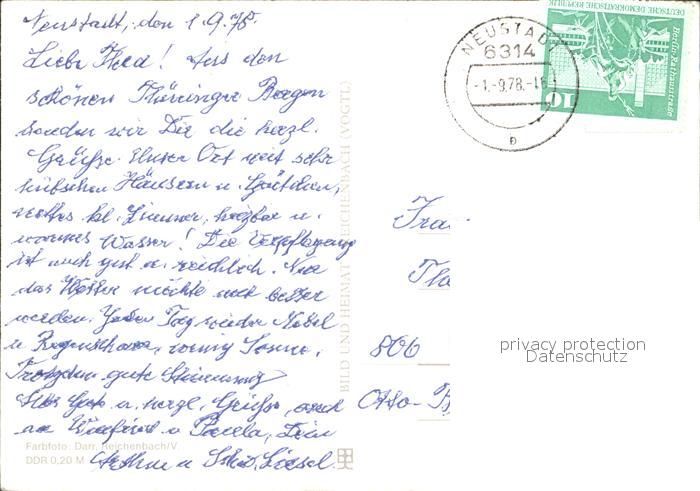 Neustadt, den 1.9.78.
Liebe ! Aus den
schönen Thüringer Bergen
senden wir Dir die herzl.
Grüße. Unser Ort mit sehr
hübschen Häusern u. Gärtchen,
nettes kl. Zimmer, heizbar u.
warmes Wasser! Die Verpflegung
ist auch gut u. reichlich. Nur
das Wetter möchte noch besser
werden. Jeden Tag wieder Nebel
u Regenschauer, wenig Sonne.
Trotzdem gute Stimmung
Alles Gute u. herzl. Grüße, auch
an Winfried u
Arthur u
Farbfoto: Darr, Reichenbach/V.
DDR 0,20 M
BILD UND HEIMAT REICHENBACH (VOGTL)
NEUSTADT
6314
-1.-9.78.-1
b
DEUTSCHE DEMOKRATISCHE REPUBLIK
Berlin-Rathausstraße
10
Frau
806
Otto-B
privacy protection
Datenschutz